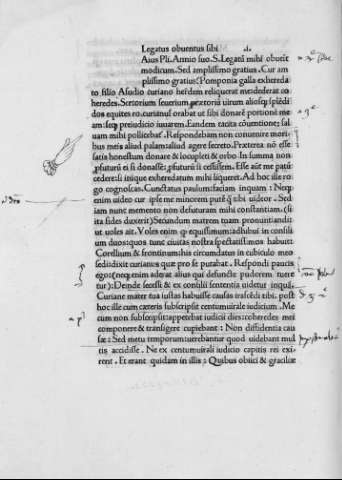 Legatus obuentus sibi
Aius Pli. Annio suo .S. Legatũ mihi obuẽit
modicum. Sed amplissimo gratius. Cur am
plissimo gratius? Pomponia galla exhereda
to filio Asudio curiano herẽdem reliquerat me: dederat co
heredes. Sertorium seuerium prætoriũ uirum aliosq; splẽdi
dos equites ro. curianus orabat ut sibi donarẽ portionẽ me
am: seq; preiudicio iuuarem. Eandem tacita cõuentione: sal
uam mihi pollicebat. Respondebam non conuenire mori
bus meis aliud palam: aliud agere secreto. Præterea nõ esse
satis honestum donare & locupleti & orbo. In summa non
profuturũ ei si donassẽ: profuturũ si cessissem. Esse autẽ me patũ
cedere: si inique exheredatum mihi liqueret. Ad hoc ille ro
go cognoscas. Cunctatus paulum: faciam inquam: Neq;
enim uideo cur ipse me minorem putẽ q̃ tibi uideor. Sed
iam nunc memento non defuturam mihi constantiam. (si
ita fides duxerit) Secundum matrem tuam pronuntiandi:
ut uoles ait. Voles enim quod equissimum: adhibui in consili
um duos: quos tunc ciuitas nostra spectatissimos habuit:
Corellium & frontinum: his circumdatus in cubiculo meo
sedi: dixit curianus quæ pro se putabat. Respondi paucis
ego: (neq; enim aderat alius qui defunctæ pudorem tuere
tur): Deinde secessi & ex consilii sententia uidetur inquã.
Curiane mater tua iustas habuisse causas irascẽdi tibi. post
hoc ille cum cæteris subscripsit centumuirale iudicium. Me
cum non subscripsit: appetebat iudicii dies: coheredes mei
componere & transigere cupiebant: Non diffidentia cau
sæ: Sed metu temporum: uerebantur quod uidebant mul
tis accidisse. Ne ex centumuirali iudicio capitis rei exi
rent. Et erant quidam in illis: Quibus obiici & gratiliæ